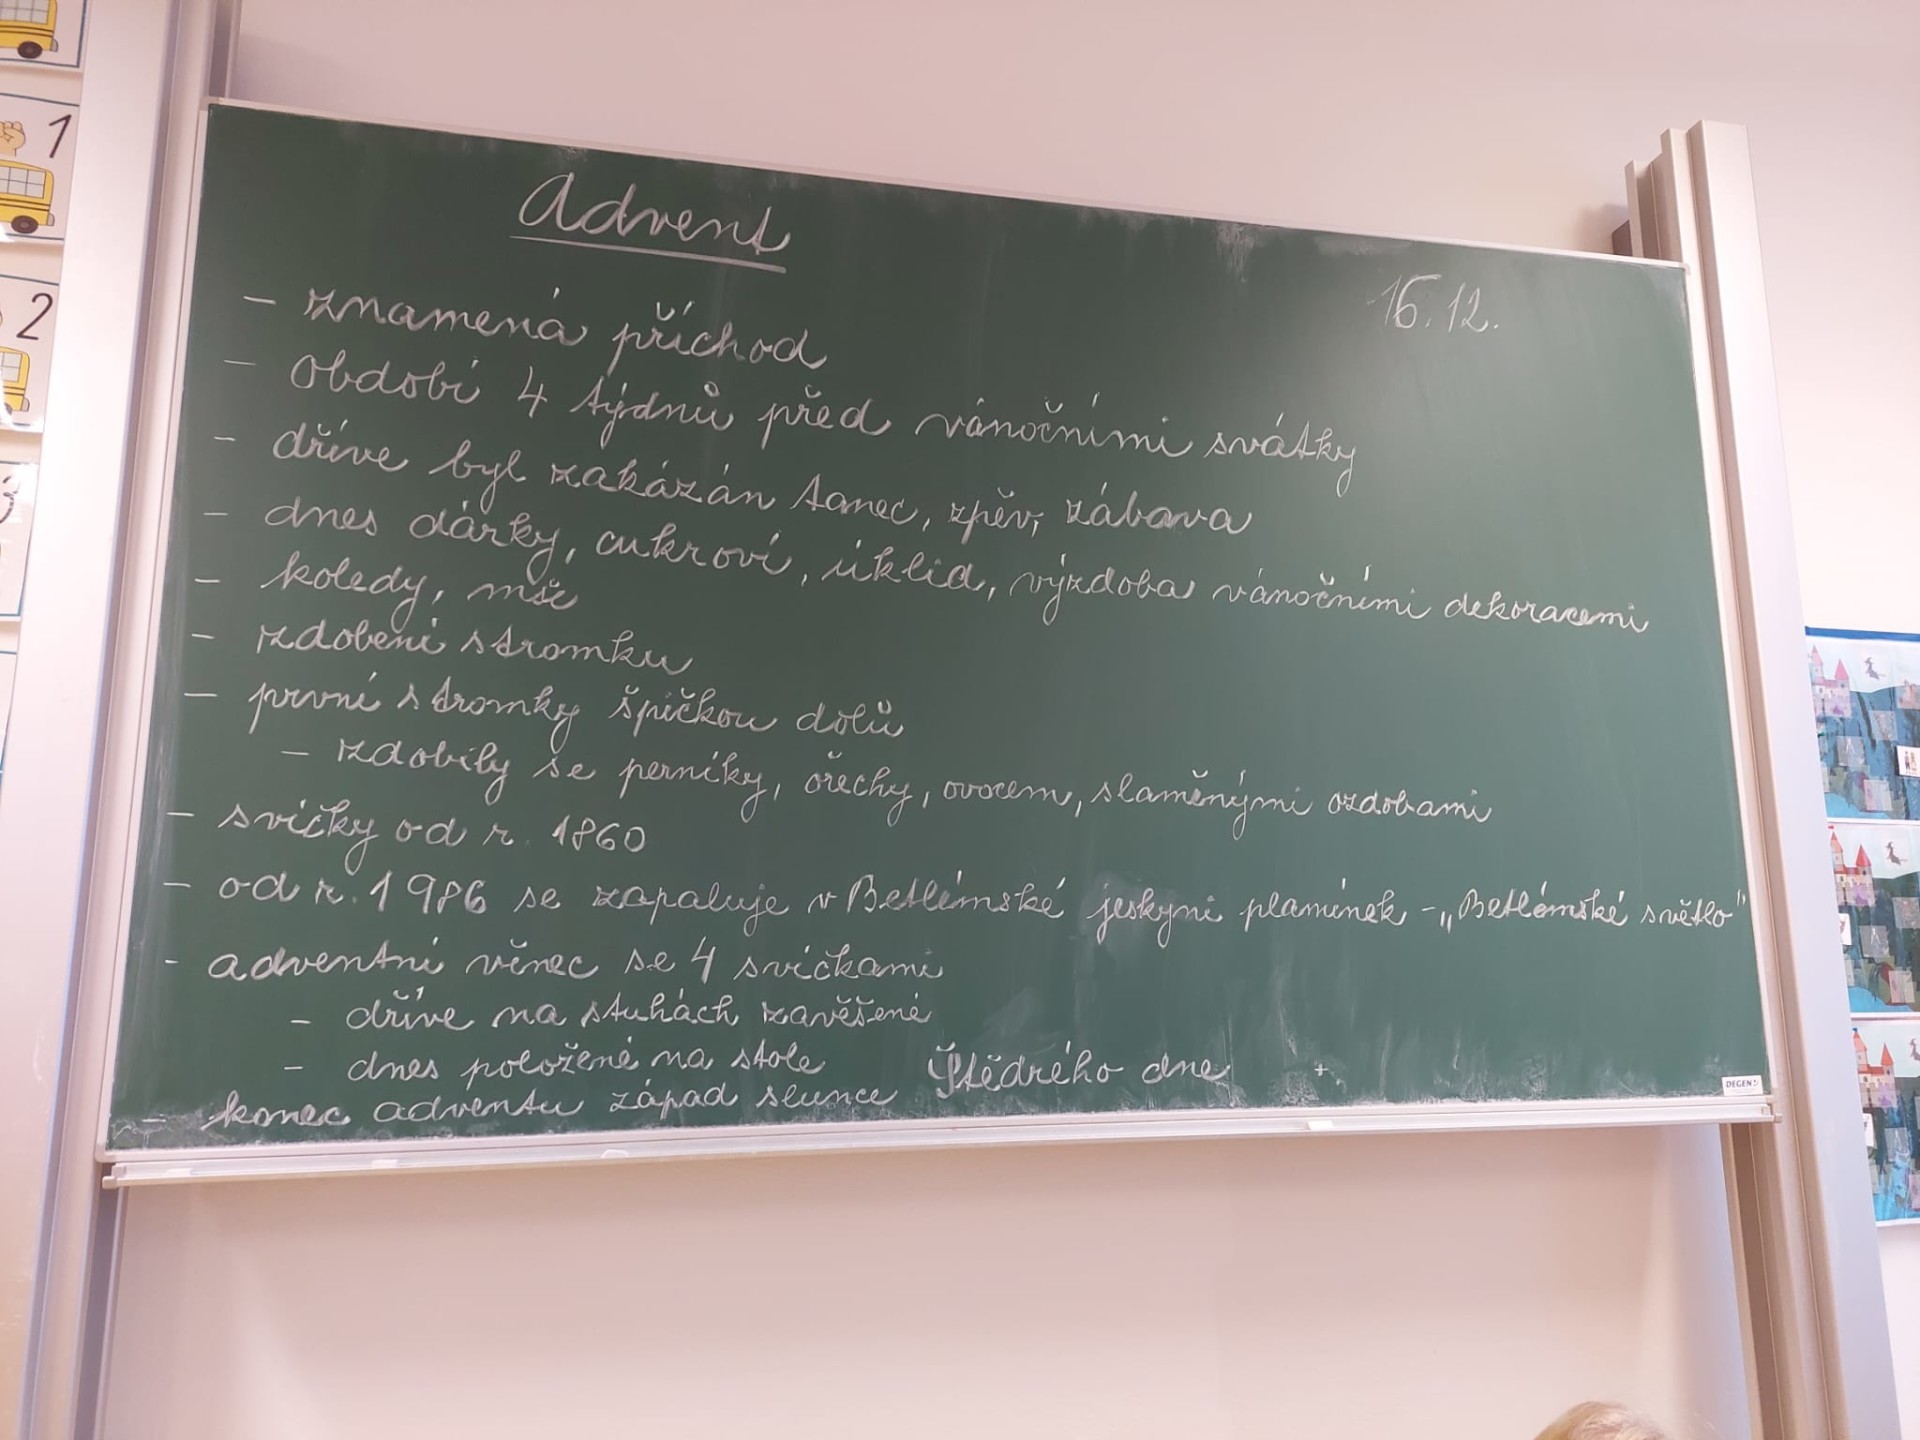 Advent
16.12.
- znamená příchod
- období 4 týdnů před vánočními svátky
- dříve byl zakázán tanec, zpěv, zábava
- dnes dárky, cukroví, úklid, výzdoba vánočními dekoracemi
- koledy, mše
- zdobení stromku
- první stromky špičkou dolů
- zdobily se perníky, ořechy, ovocem, slaměnými ozdobami
- svíčky od r. 1860
- od r. 1986 se zapaluje v Betlémské jeskyni plamínek - „Betlémské světlo"
- adventní věnec se 4 svíčkami
- dříve na stuhách zavěšené
- dnes položené na stole
- konec adventu západ slunce Štědrého dne
DEGEN
1
2
3